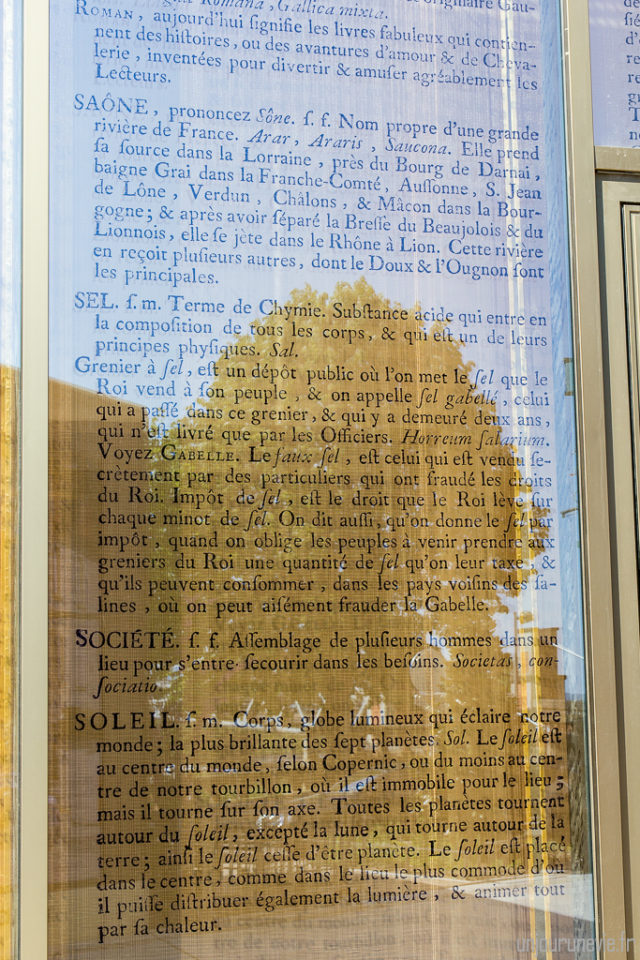 Romana, Gallica mixta.
ROMAN, aujourd'hui ſignifie les livres fabuleux qui contien-
nent des hiſtoires, ou des avantures d'amour & de Cheva-
lerie, inventées pour divertir & amuſer agréablement les
Lecteurs.
SAÔNE, prononcez Sône. ſ. f. Nom propre d'une grande
rivière de France. Arar, Araris, Saucona. Elle prend
ſa ſource dans la Lorraine, près du Bourg de Darnai,
baigne Grai dans la Franche-Comté, Auſſonne, S. Jean
de Lône, Verdun, Châlons, & Mâcon dans la Bour-
gogne; & après avoir ſéparé la Breſſe du Beaujolois & du
Lionnois, elle ſe jète dans le Rhône à Lion. Cette rivière
en reçoit pluſieurs autres, dont le Doux & l'Ougnon ſont
les principales.
SEL. ſ. m. Terme de Chymie. Subſtance acide qui entre en
la compoſition de tous les corps, & qui eſt un de leurs
principes phyſiques. Sal.
Grenier à ſel, eſt un dépôt public où l'on met le ſel que le
Roi vend à ſon peuple, & on appelle ſel gabellé, celui
qui a paſſé dans ce grenier, & qui y a demeuré deux ans,
qui n'eſt livré que par les Officiers. Horreum ſalarium.
Voyez GABELLE. Le faux ſel, eſt celui qui eſt vendu ſe-
crètement par des particuliers qui ont fraudé les droits
du Roi. Impôt de ſel, eſt le droit que le Roi lève ſur
chaque minot de ſel. On dit auſſi, qu'on donne le ſel par
impôt, quand on oblige les peuples à venir prendre aux
greniers du Roi une quantité de ſel qu'on leur taxe, &
qu'ils peuvent conſommer, dans les pays voiſins des ſa-
lines, où on peut aiſément frauder la Gabelle.
SOCIÉTÉ. ſ. f. Aſſemblage de pluſieurs hommes dans un
lieu pour s'entre-ſecourir dans les beſoins. Societas, con-
ſociatio.
SOLEIL. ſ. m. Corps, globe lumineux qui éclaire notre
monde; la plus brillante des ſept planètes. Sol. Le ſoleil eſt
au centre du monde, ſelon Copernic, ou du moins au cen-
tre de notre tourbillon, où il eſt immobile pour le lieu;
mais il tourne ſur ſon axe. Toutes les planètes tournent
autour du ſoleil, excepté la lune, qui tourne autour de la
terre; ainſi le ſoleil ceſſe d'être planète. Le ſoleil eſt placé
dans le centre, comme dans le lieu le plus commode d'où
il puiſſe diſtribuer également la lumière, & animer tout
par ſa chaleur.
unjourunevie.fr